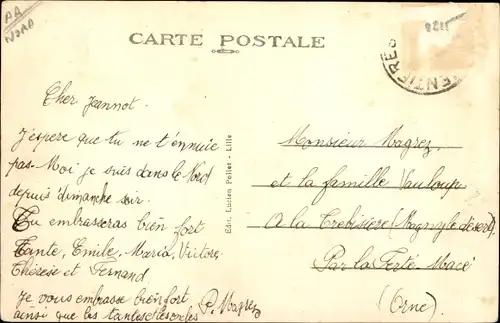 AA
NORD
CARTE POSTALE
Cher Jeannot.
J'espere que tu ne t'ennuie
pas. Moi je suis dans le Nord
depuis dimanche soir.
Tu embrasseras bien fort
Tante, Emile, Maria, Victor,
Thérèse et Fernand
Je vous embrasse bien fort
ainsi que les tantes
P. Magrez
Edit. Lucien Pollet - Lille
ENTIÈRES
Monsieur Magrez
et la famille Vauloup
A la Trebisière (Magny le désert)
Par la Ferté-Macé
(Orne)